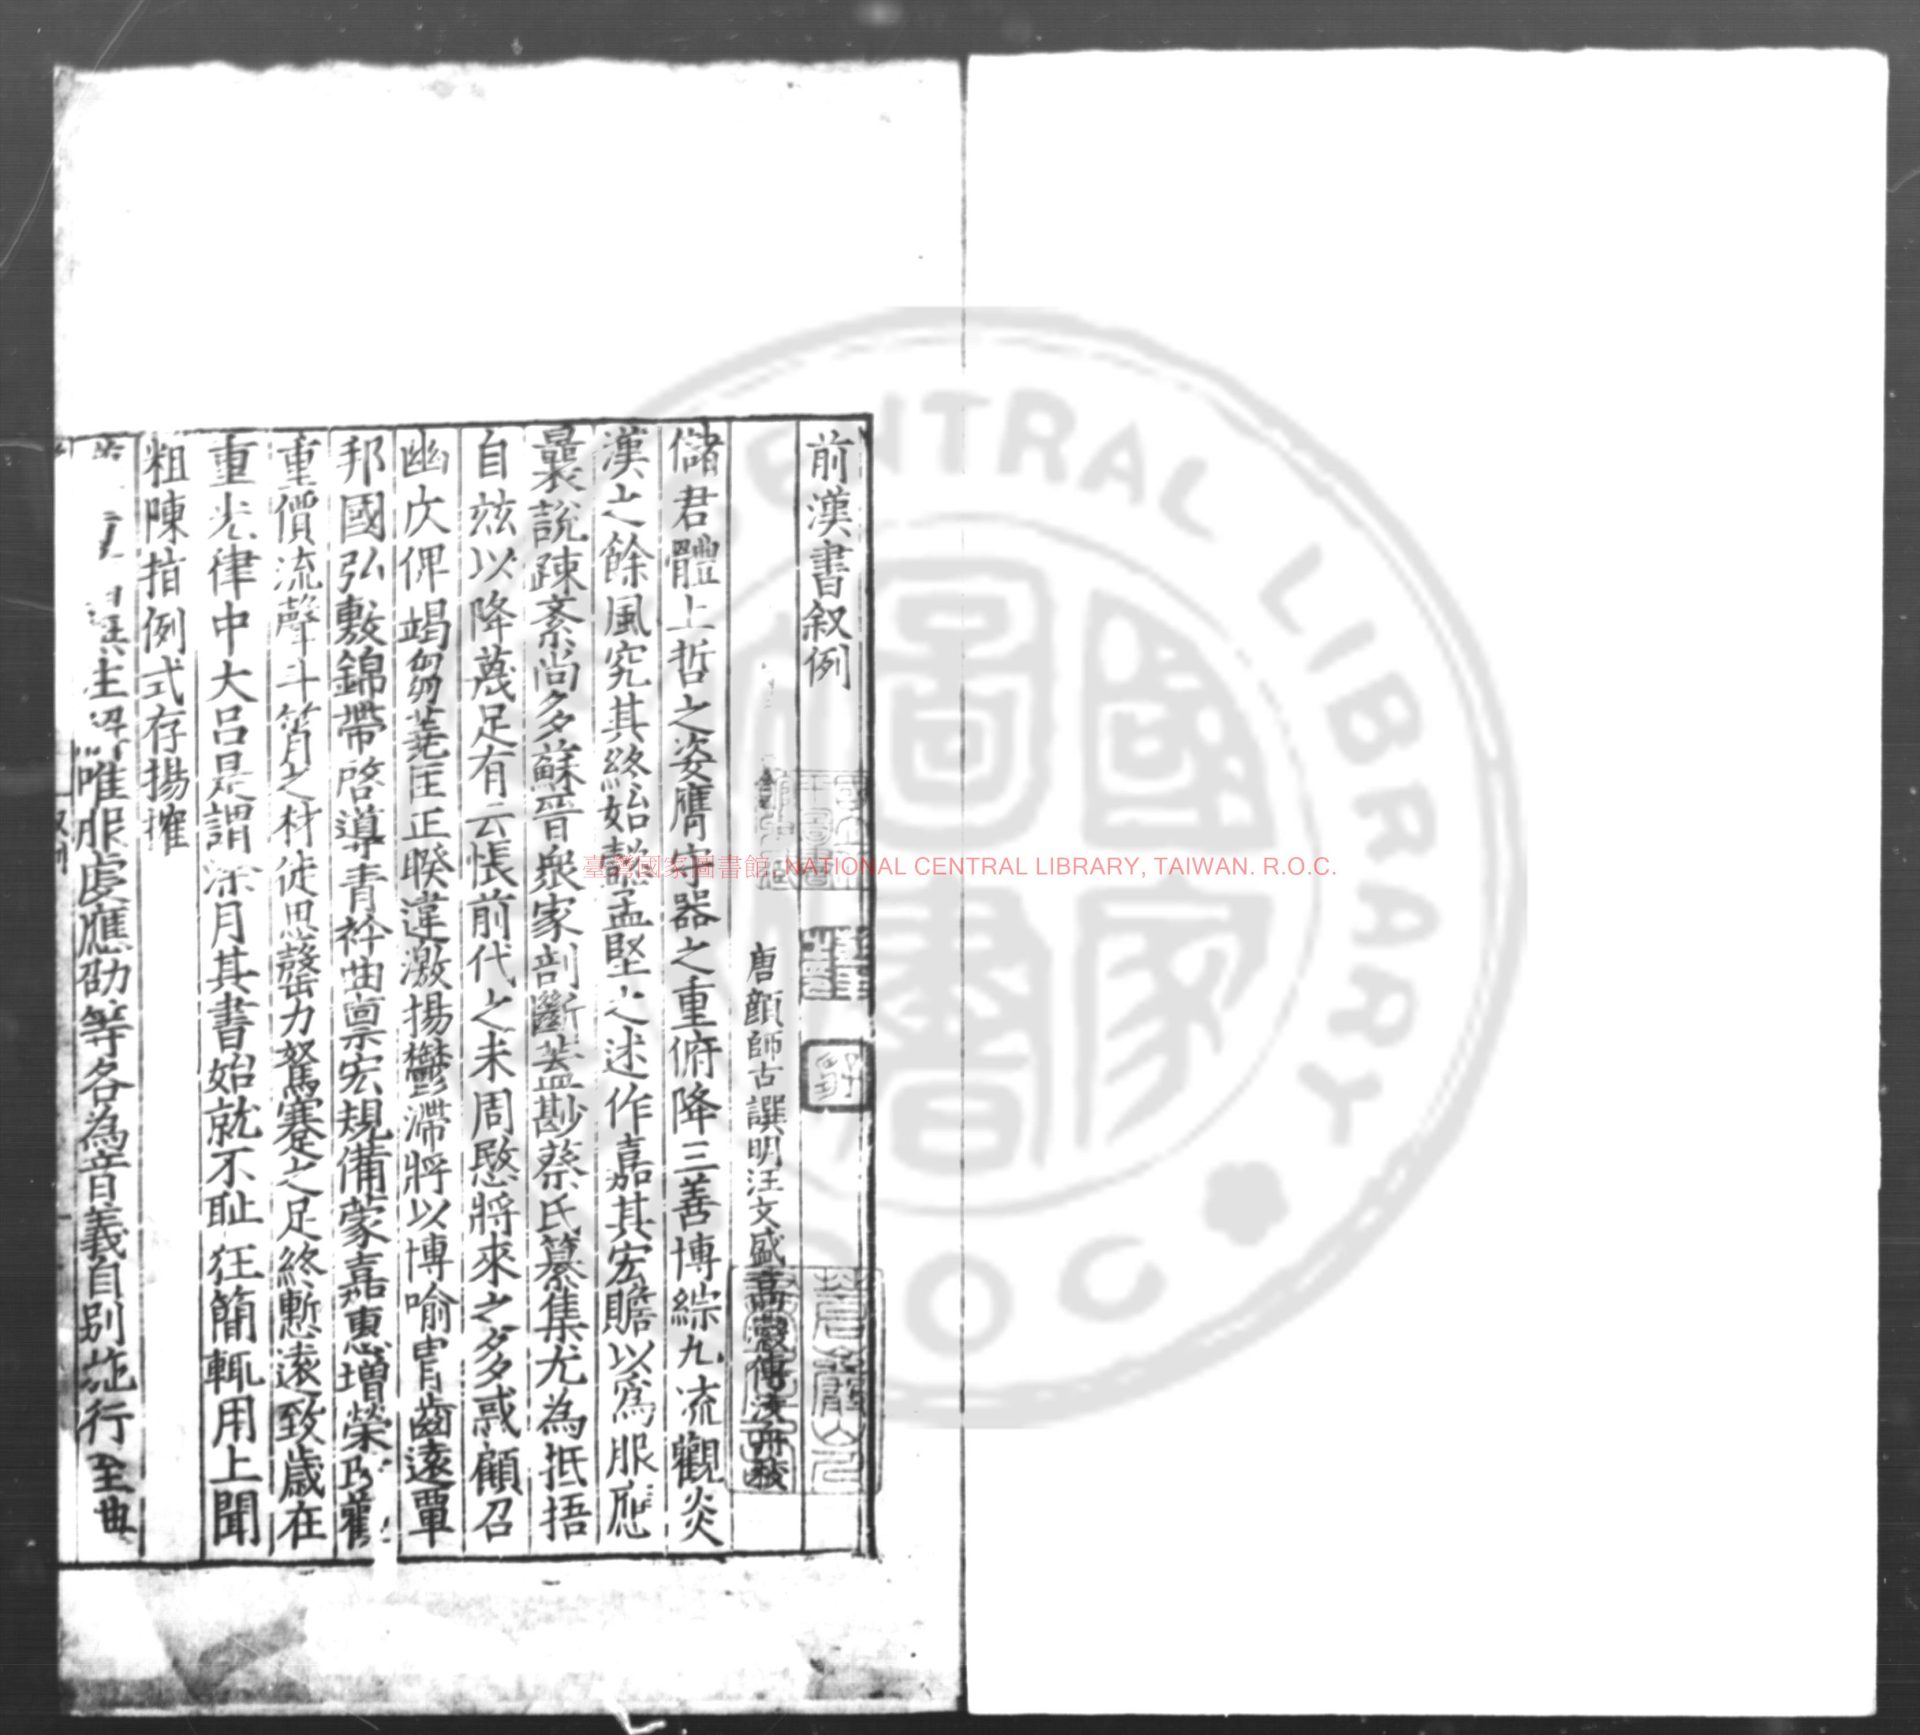 前漢書叙例
唐顔師古譔明汪文盛高瀔傅汝舟校
儲君體上哲之姿膺守器之重俯降三善博綜九流觀炎
漢之餘風究其終始懿孟堅之述作嘉其宏贍以爲服應
曩說疎紊尚多蘇晉衆家剖斷蓋尠蔡氏纂集尤為抵捂
自玆以降蔑足有云悵前代之未周愍將來之多惑顧召
幽仄俾竭芻蕘匡正睽違激揚鬱滯將以博喻胄齒遠覃
邦國弘敷錦帶啓導青衿曲禀宏規備蒙嘉惠增榮改觀
重價流聲斗筲之材徒思罄力駑蹇之足終慙遠致歲在
重光律中大呂是謂涂月其書始就不恥狂簡輒用上聞
粗陳指例式存揚搉
注解唯服虔應劭等各為音義自别施行至典
叙例
臺灣國家圖書館, NATIONAL CENTRAL LIBRARY, TAIWAN. R.O.C.
NTRAL LIBRARY
國家圖書